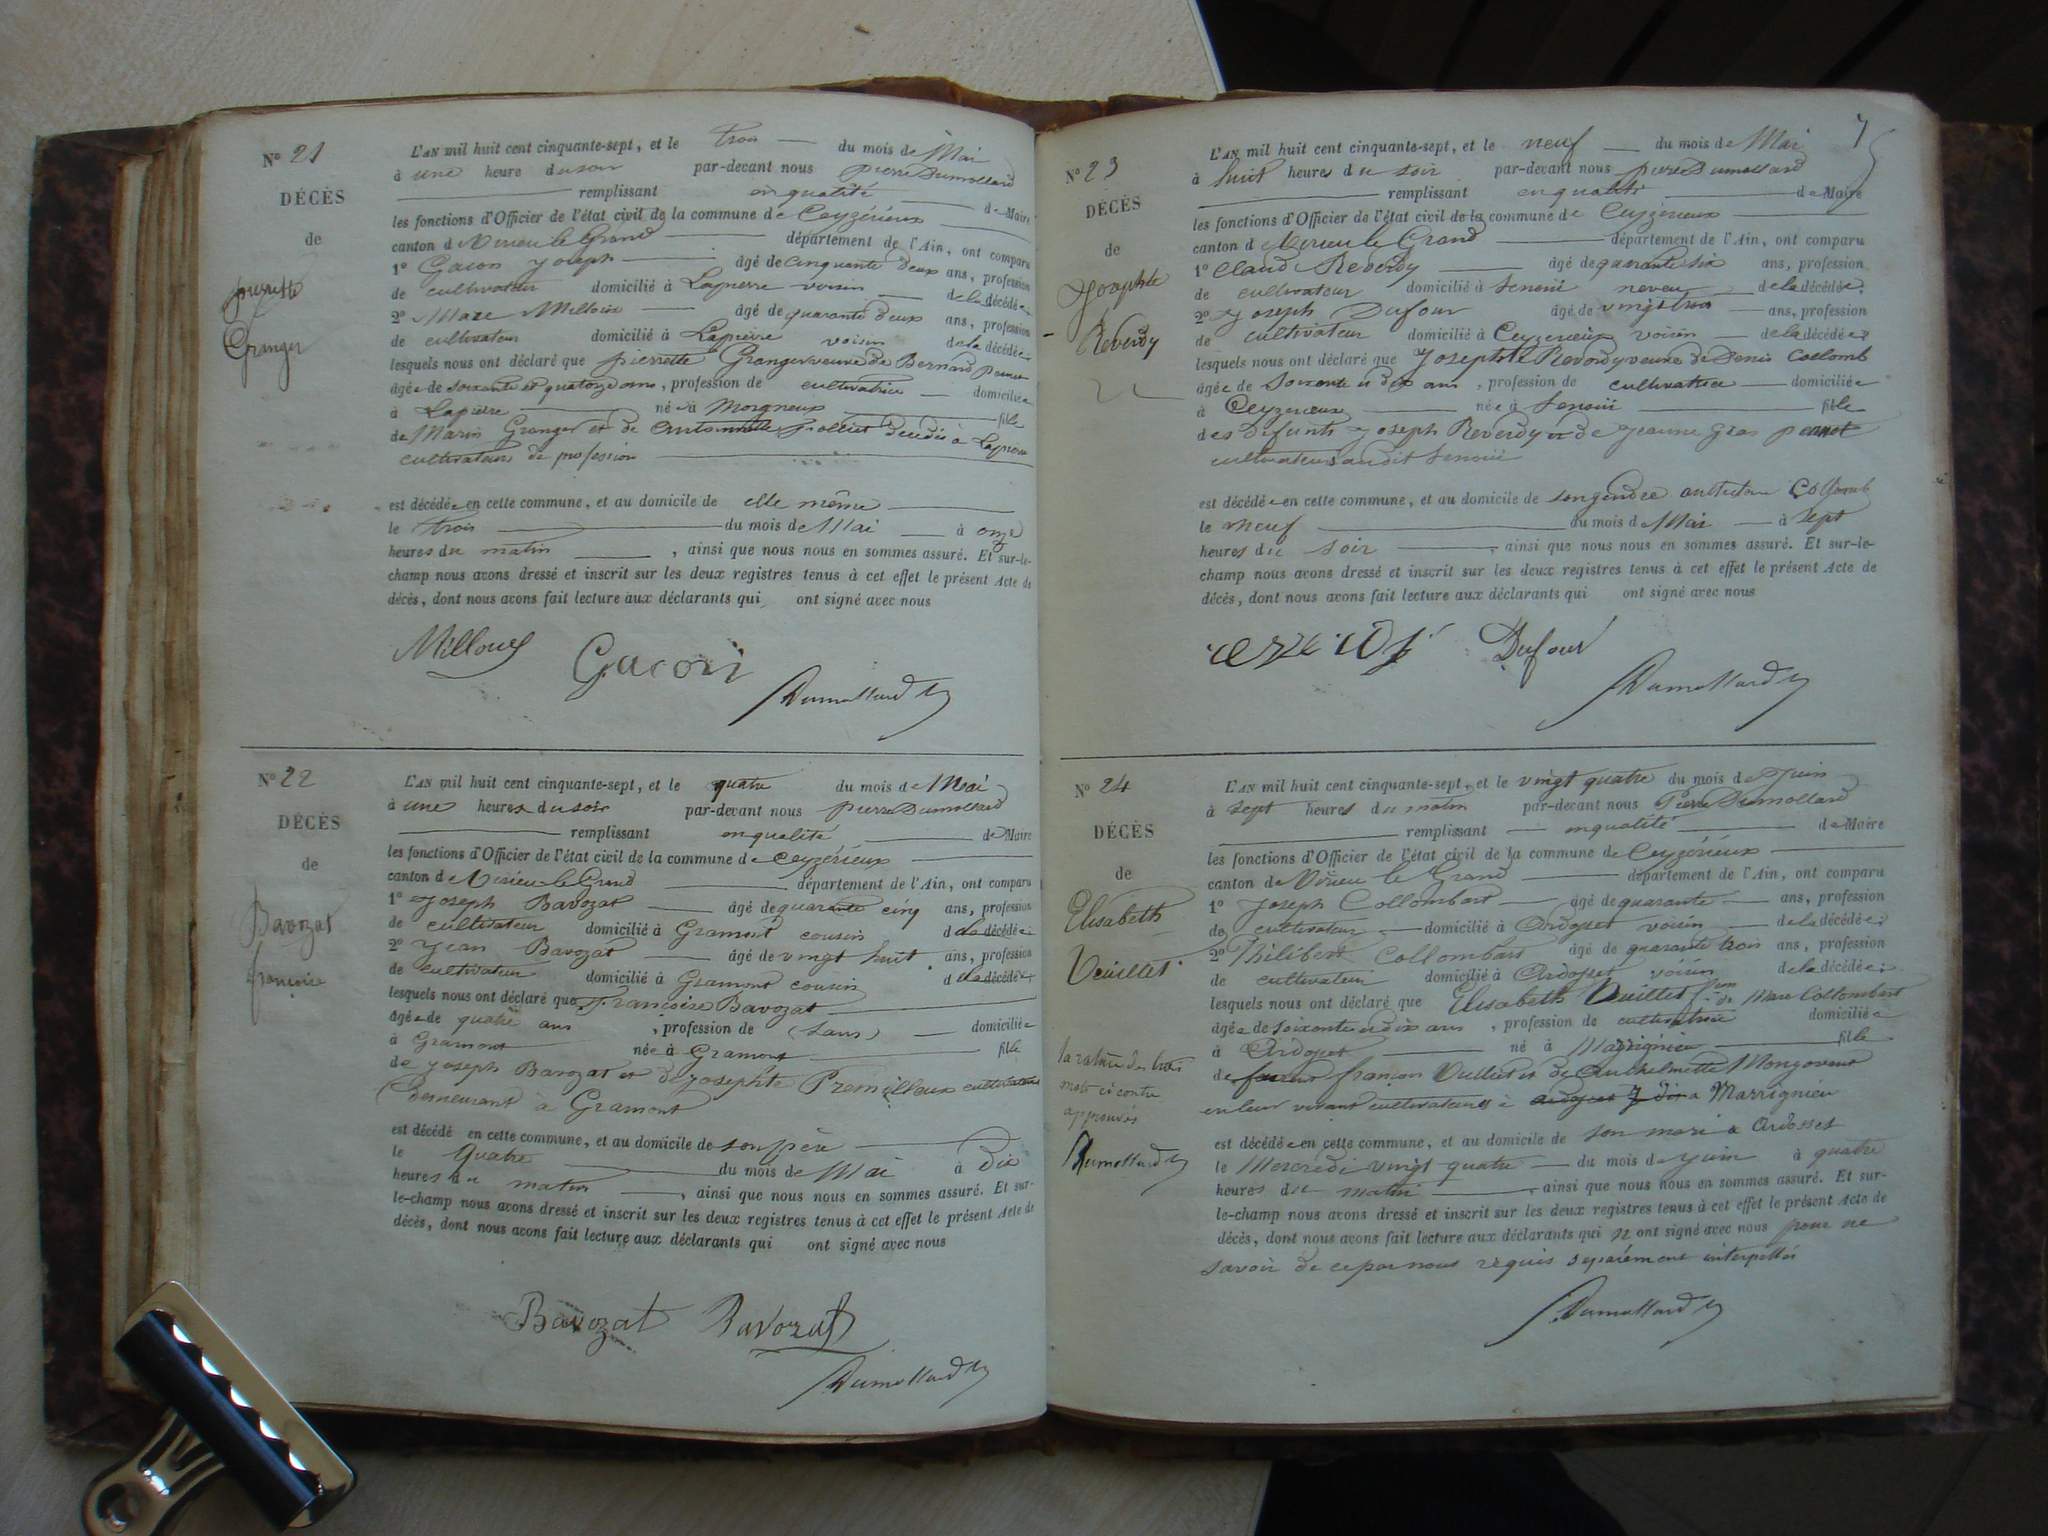 N° 21
DÉCÈS
de
pierrette
Granger
L'AN mil huit cent cinquante-sept, et le trois du mois de Mai
à une heure du soir par-devant nous pierre Dumollard
remplissant en qualité de Maire
les fonctions d'Officier de l'état civil de la commune de Ceyzérieux
canton d Virieu le Grand département de l'Ain, ont comparu
1° Gacon Joseph âgé de cinquante deux ans, profession
de cultivateur domicilié à Lapierre voisin de la décédée
2° Marc Milloux âgé de quarante deux ans, profession
de cultivateur domicilié à Lapierre voisin de la décédée
lesquels nous ont déclaré que pierrette Granger veuve de Bernard
âgée de soixante et quatorze ans, profession de cultivatrice domiciliée
à Lapierre née à Morgneux fille
de Marin Granger et de décédés à Lapierre
cultivateurs de profession
est décédée en cette commune, et au domicile de elle même
le trois du mois de Mai à onze
heures du matin, ainsi que nous nous en sommes assuré. Et sur-le-
champ nous avons dressé et inscrit sur les deux registres tenus à cet effet le présent Acte de
décès, dont nous avons fait lecture aux déclarants qui ont signé avec nous
Milloux Gacon
Dumollard
N° 22
DÉCÈS
de
Bavozat
francoise
L'AN mil huit cent cinquante-sept, et le quatre du mois de Mai
à une heures du soir par-devant nous pierre Dumollard
remplissant en qualité de Maire
les fonctions d'Officier de l'état civil de la commune de Ceyzérieux
canton de Virieu le Grand département de l'Ain, ont comparu
1° Joseph Bavozat âgé de quarante cinq ans, profession
de cultivateur domicilié à Gramont cousin d la décédée
2° Jean Bavozat âgé de vingt huit ans, profession
de cultivateur domicilié à Gramont cousin d la décédée
lesquels nous ont déclaré que Francoise Bavozat
âgée de quatre ans, profession de (sans) domiciliée
à Gramont née à Gramont fille
de Joseph Bavozat et de Josephte Premilleux cultivateurs
demeurant à Gramont
est décédé en cette commune, et au domicile de son père
le quatre du mois de Mai à dix
heures du matin, ainsi que nous nous en sommes assuré. Et sur-
le-champ nous avons dressé et inscrit sur les deux registres tenus à cet effet le présent Acte de
décès, dont nous avons fait lecture aux déclarants qui ont signé avec nous
Bavozat Bavozat
Dumollard
7
N° 23
DÉCÈS
de
Josephte
Reverdy
L'AN mil huit cent cinquante-sept, et le neuf du mois de Mai
à huit heures du soir par-devant nous pierre Dumollard
remplissant en qualité de Maire
les fonctions d'Officier de l'état civil de la commune de Ceyzérieux
canton d Virieu le Grand département de l'Ain, ont comparu
1° Claude Reverdy âgé de quarante six ans, profession
de cultivateur domicilié à Senoii neveu de la décédée
2° Joseph Dufour âgé de vingt trois ans, profession
de cultivateur domicilié à Ceyzerieux voisin de la décédée
lesquels nous ont déclaré que Josephte Reverdy veuve de Denis Collomb
âgée de soixante et dix ans, profession de cultivatrice domiciliée
à Ceyzerieux née à Senoii fille
des Défunts Joseph Reverdy et de Jeanne Gros
cultivateurs audit Senoii
est décédée en cette commune, et au domicile de son gendre Collomb
le neuf du mois de Mai à sept
heures du soir, ainsi que nous nous en sommes assuré. Et sur-le-
champ nous avons dressé et inscrit sur les deux registres tenus à cet effet le présent Acte de
décès, dont nous avons fait lecture aux déclarants qui ont signé avec nous
Dufour
Dumollard
N° 24
DÉCÈS
de
Elisabeth
Vuillet
L'AN mil huit cent cinquante-sept, et le vingt quatre du mois de Juin
à sept heures du matin par-devant nous Pierre Dumollard
remplissant en qualité de Maire
les fonctions d'Officier de l'état civil de la commune de Ceyzérieux
canton de Virieu le Grand département de l'Ain, ont comparu
1° Joseph Collombart âgé de quarante ans, profession
de cultivateur domicilié à Ardosset voisin de la décédée
2° Philibert Collombart âgé de quarante trois ans, profession
de cultivateur domicilié à Ardosset voisin de la décédée
lesquels nous ont déclaré que Elisabeth Vuillet fem de Marc Collombert
âgée de soixante et dix ans, profession de cultivatrice domiciliée
à Ardosset né à Marrignieu fille
de francois Vulliet et de Anthelmette Mongovent
en leur vivant cultivateurs à ardosset a Marrignieu
la rature des trois
mots ci contre
approuvés
Dumollard
est décédée en cette commune, et au domicile de son mari a Ardosset
le Mercredi vingt quatre du mois de Juin à quatre
heures du matin, ainsi que nous nous en sommes assuré. Et sur-
le-champ nous avons dressé et inscrit sur les deux registres tenus à cet effet le présent Acte de
décès, dont nous avons fait lecture aux déclarants qui n ont signé avec nous pour ne
savoir de ce par nous requis séparément interpellés
Dumollard